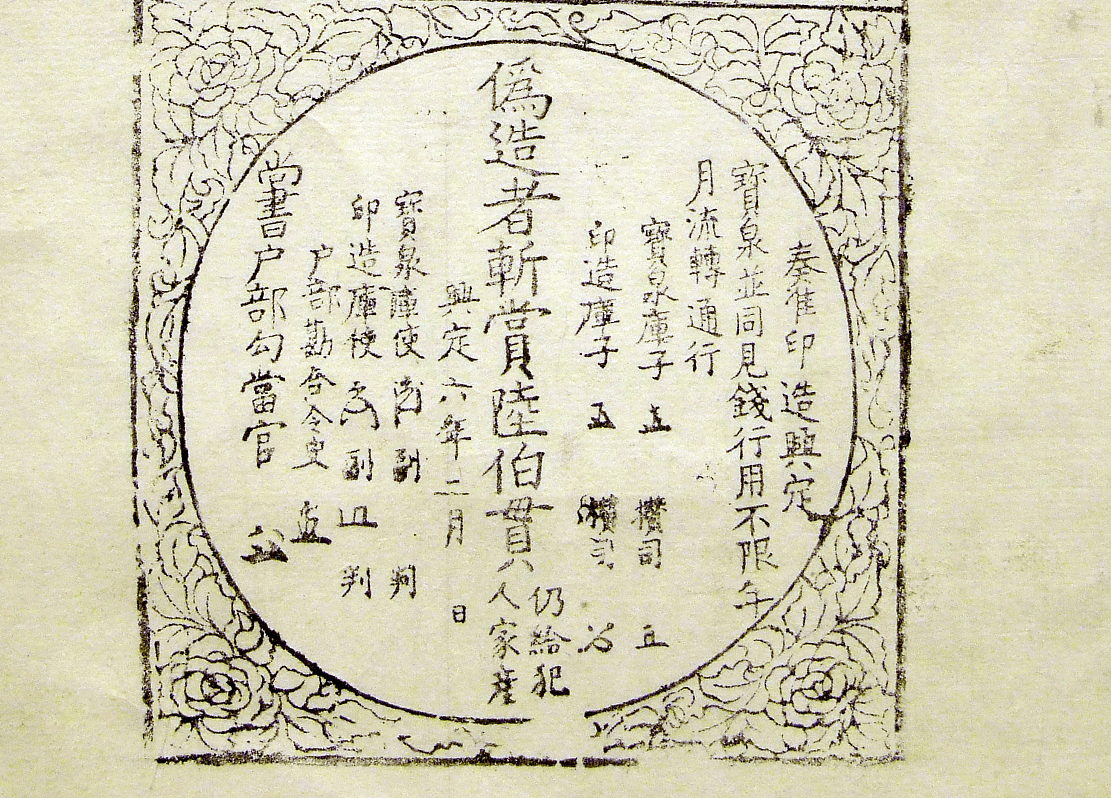 奏准印造興定
寳泉並同見錢行用不限年
月流轉通行
寳泉庫子 攢司
印造庫子 攢司
偽造者斬賞陸伯貫仍給犯
人家產
興定六年二月 日
寳泉庫使 副 判
印造庫使 副 判
户部勘合令史
尚書户部勾當官